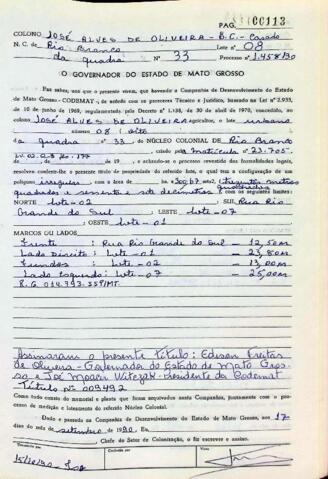 PAG. 00113
COLONO JOSÉ ALVES DE OLIVEIRA - B.C. - Casado
N. C. de Rio Branco Lote nº 08
da quadra Nº 33 Processo nº 1.458/90
O GOVERNADOR DO ESTADO DE MATO GROSSO
Faz saber, aos que o presente virem, que havendo a Companhia de Desenvolvimento do Estado
de Mato Grosso - CODEMAT -, de acordo com os pareceres Técnico e Jurídico, baseado na Lei nº 2.933,
de 10 de junho de 1969, regulamentada pelo Decreto nº 1.138, de 30 de abril de 1970, vencedido, ao
colono JOSÉ ALVES DE OLIVEIRA agricultor, o lote urbano
número 08 (oito
da quadra nº 33. DO NÚCLEO COLONIAL DE Rio Branco
criado pela Matrícula - 23.705.
de 19 , e achando-se o processo revestido das formalidades legais,
resolveu conferir-lhe o presente título de propriedade do referido lote, o qual tem a configuração de um
polígono irregular com a área de
quadrados e sessenta e sete decímetros quadrados e com os seguintes limites:
NORTE lote-02 ; SUL Rua Rio
Grande do Sul ; LESTE lote-07
; OESTE lote-01
MARCOS OU LADOS
Frente : Rua Rio Grande do Sul - 12,50m
Lado Direito : lote-01 - 23,80m
Fundos : lote-02 - 13,00m
Lado Esquerdo : lote-07 - 25,00m
R.G. 014.793.559/MT.
Assinaram o presente Título: Edison Freitas
de Oliveira - Governador do Estado de Mato Gros-
so e José Moacir - Presidente da Codemat
Título nº 009492
Como tudo consta do memorial e planta que ficam arquivados nesta Companhia, juntamente com o pro-
cesso de medição e loteamento do referido Núcleo Colonial.
Dado e passado na Companhia de Desenvolvimento do Estado de Mato Grosso, aos 17
dias do mês de setembro de 1990. Eu,
Chefe do Setor de Colonização, o fiz escrever e assino.